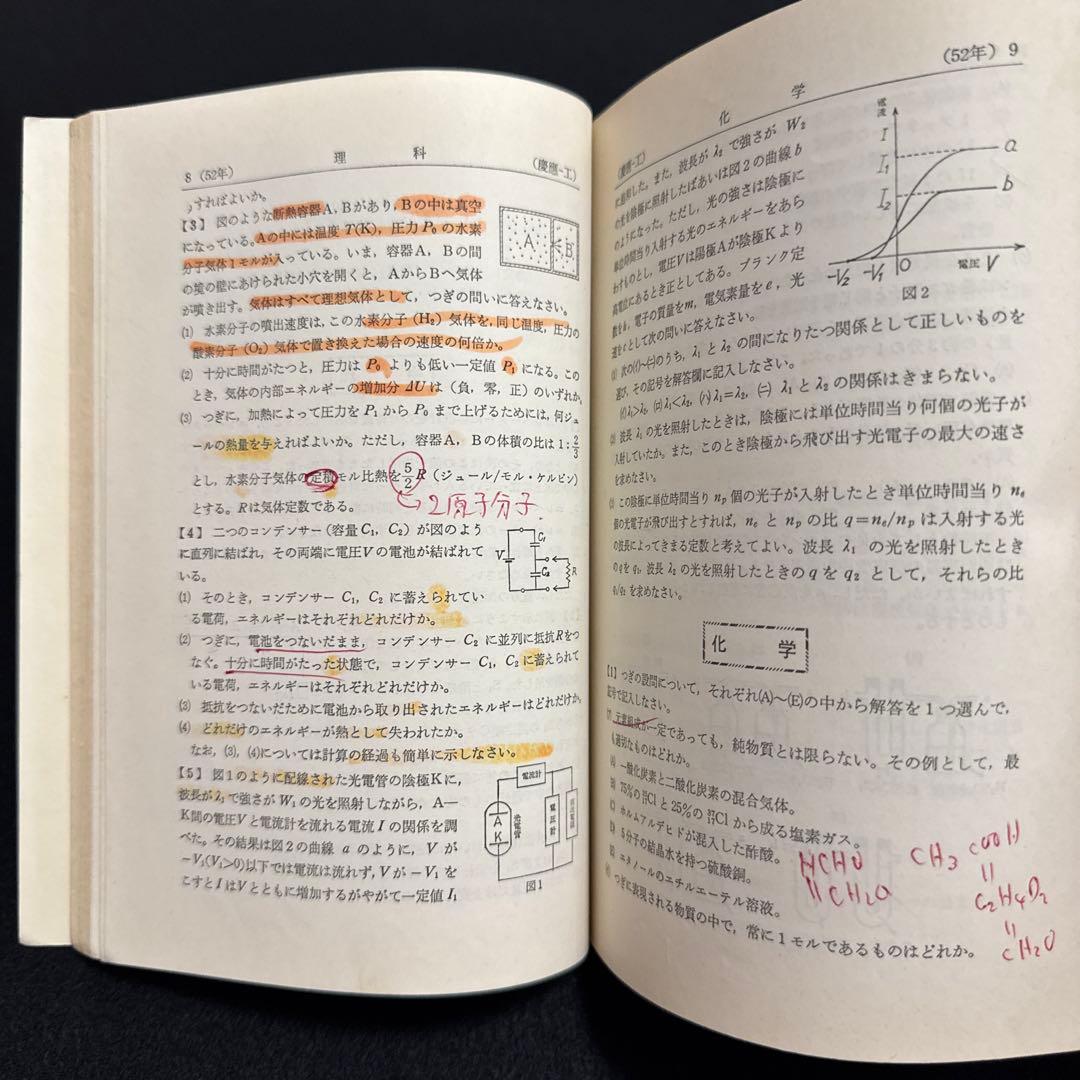 8 (52年)
理 科
(慶應-工)
すればよいか。
【3】 図のような断熱容器A, Bがあり, Bの中は真空
になっている。Aの中には温度 T(K), 圧力 P₀ の水素
分子気体1モルが入っている。いま, 容器A, Bの間
の境の壁にあけられた小穴を開くと, AからBへ気体
が噴き出す。気体はすべて理想気体として, つぎの問いに答えなさい。
(1) 水素分子の噴出速度は, この水素分子(H₂)気体を, 同じ温度, 圧力の
酸素分子(O₂)気体で置き換えた場合の速度の何倍か。
(2) 十分に時間がたつと, 圧力は P₀ よりも低い一定値 P₁ になる。この
とき, 気体の内部エネルギーの増加分 ΔU は(負, 零, 正)のいずれか。
(3) つぎに, 加熱によって圧力を P₁ から P₀ まで上げるためには, 何ジュ
ールの熱量を与えればよいか。ただし, 容器A, Bの体積の比は 1:2/3
とし, 水素分子気体の定積モル比熱を 5/2 R (ジュール/モル・ケルビン)
とする。Rは気体定数である。
2原子分子
A
B
【4】 二つのコンデンサー(容量 C₁, C₂) が図のよう
に直列に結ばれ, その両端に電圧Vの電池が結ばれて
いる。
(1) そのとき, コンデンサー C₁, C₂ に蓄えられてい
る電荷, エネルギーはそれぞれどれだけか。
(2) つぎに, 電池をつないだまま, コンデンサー C₂ に並列に抵抗Rをつ
なぐ。十分に時間がたった状態で, コンデンサー C₁, C₂ に蓄えられて
いる電荷, エネルギーはそれぞれどれだけか。
(3) 抵抗をつないだために電池から取り出されたエネルギーはどれだけか。
(4) どれだけのエネルギーが熱として失われたか。
なお, (3), (4)については計算の経過も簡単に示しなさい。
V
C₁
C₂
R
【5】 図1のように配線された光電管の陰極Kに,
波長がλ₁で強さがW₁の光を照射しながら, A—
K間の電圧Vと電流計を流れる電流 I の関係を調
べた。その結果は図2の曲線 a のように, V が
−V₁(V₁>0)以下では電流は流れず, Vが −V₁ を
こすと I はVとともに増加するがやがて一定値 I₁
電流計
A
K
光電管
電圧計
図1
(52年) 9
化 学
(慶應-工)
に達した。また, 波長が λ₂ で強さが W₂
の光を陰極に照射したばあいは図2の曲線 b
のようになった。ただし, 光の強さは陰極に
単位時間当り入射する光のエネルギーをあら
わすものとし, 電圧Vは陽極Aが陰極Kより
高電位にあるとき正としてある。プランク定
数をh, 電子の質量をm, 電気素量をe, 光
速をcとして次の問いに答えなさい。
電流
I
I₁
I₂
a
b
−V₂
−V₁
O
電圧 V
図2
次の(イ)〜(ニ)のうち, λ₁ と λ₂ の間になりたつ関係として正しいものを
選び, その記号を解答欄に記入しなさい。
(イ) λ₁>λ₂, (ロ) λ₁<λ₂, (ハ) λ₁=λ₂, (ニ) λ₁とλ₂の関係はきまらない。
波長 λ₁ の光を照射したときは, 陰極には単位時間当り何個の光子が
入射していたか。また, このとき陰極から飛び出す光電子の最大の速さ
を求めなさい。
この陰極に単位時間当り nₚ 個の光子が入射したとき単位時間当り nₑ
個の光電子が飛び出すとすれば, nₑ と nₚ の比 q=nₑ/nₚ は入射する光
の波長によってきまる定数と考えてよい。波長 λ₁ の光を照射したとき
のqをq₁, 波長 λ₂ の光を照射したときのqを q₂ として, それらの比
q₁/q₂ を求めなさい。
化 学
【1】 つぎの設問について, それぞれ(A)〜(E)の中から解答を1つ選んで,
記号で記入しなさい。
元素組成が一定であっても, 純物質とは限らない。その例として, 最
も適切なものはどれか。
一酸化炭素と二酸化炭素の混合気体。
75%の³⁵₁₇Clと25%の³⁷₁₇Clから成る塩素ガス。
ホルムアルデヒドが混入した酢酸。
5分子の結晶水を持つ硫酸銅。
エタノールのエチルエーテル溶液。
つぎに表現される物質の中で, 常に1モルであるものはどれか。
HCHO
CH₂O
CH₃ COOH
C₂H₄O₂
CH₂O